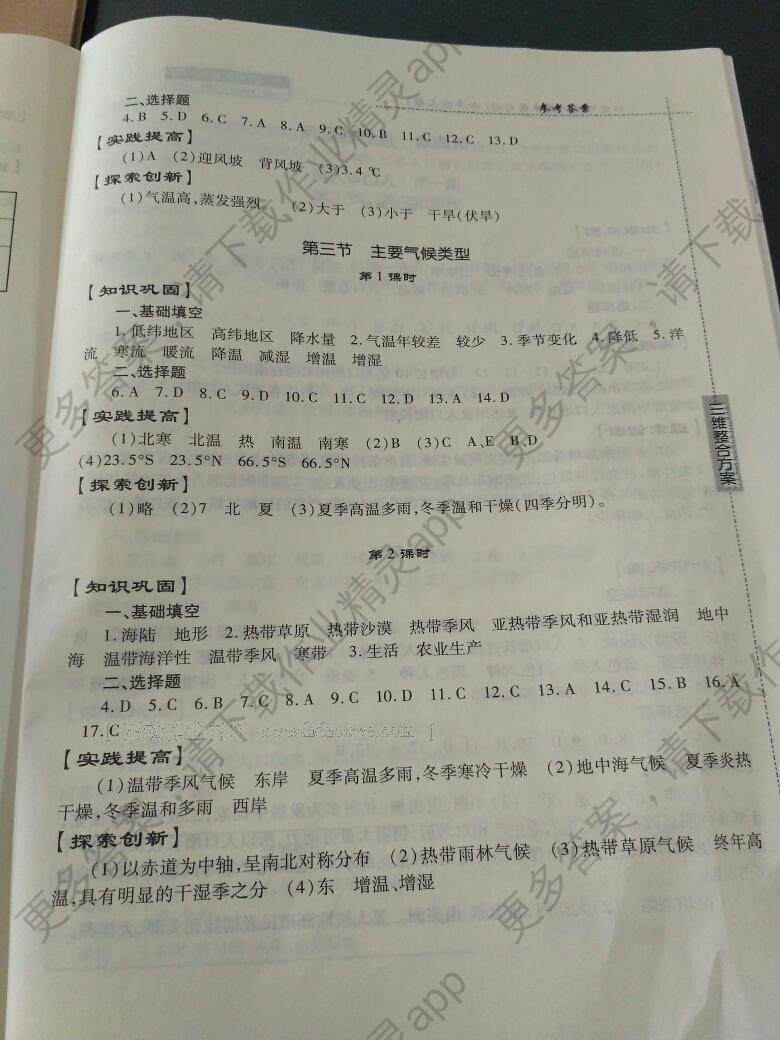 参考答案
二、选择题
4.B 5.D 6.C 7.A 8.A 9.C 10.B 11.C 12.C 13.D
【实践提高】
(1)A (2)迎风坡 背风坡 (3)3.4 ℃
【探索创新】
(1)气温高,蒸发强烈。 (2)大于 (3)小于 干旱(伏旱)
第三节 主要气候类型
第1课时
【知识巩固】
一、基础填空
1.低纬地区 高纬地区 降水量 2.气温年较差 较少 3.季节变化 4.降低 5.洋
流 寒流 暖流 降温 减湿 增温 增湿
二、选择题
6.A 7.D 8.C 9.D 10.C 11.C 12.D 13.A 14.D
【实践提高】
(1)北寒 北温 热 南温 南寒 (2)B (3)C A、E B、D
(4)23.5°S 23.5°N 66.5°S 66.5°N
【探索创新】
(1)略 (2)7 北 夏 (3)夏季高温多雨,冬季温和干燥(四季分明)。
第2课时
【知识巩固】
一、基础填空
1.海陆 地形 2.热带草原 热带沙漠 热带季风 亚热带季风和亚热带湿润 地中
海 温带海洋性 温带季风 寒带 3.生活 农业生产
二、选择题
4.D 5.C 6.B 7.C 8.A 9.C 10.D 11.C 12.C 13.A 14.C 15.B 16.A
17.C
【实践提高】
(1)温带季风气候 东岸 夏季高温多雨,冬季寒冷干燥 (2)地中海气候 夏季炎热
干燥,冬季温和多雨 西岸
【探索创新】
(1)以赤道为中轴,呈南北对称分布 (2)热带雨林气候 (3)热带草原气候 终年高
温,具有明显的干湿季之分 (4)东 增温、增湿
三维整合方案
更多答案 请下载作业精灵app
更多答案 请下载作业精灵app
更多答案 请下载作业精灵app
请下载